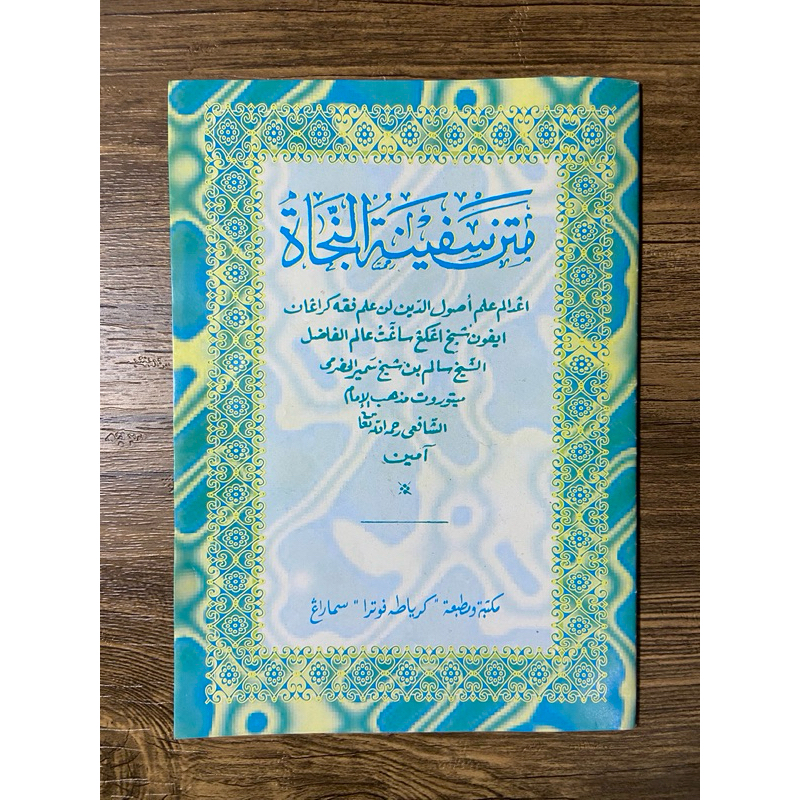 متن سَفينَةُ النَّجَاةْ
اعدالم علم أصول الدين لن علم فقه كراڠان
ايفون شيخ اڠكڠ ساڠت عالم الفاضل
الشيخ سالم بن شيخ سمير الحضرمى
ميتوروت مذهب الإمام
الشافعى رحمه الله تعالى
آمين
مكتبة ومطبعة "كرياطه فوترا" سماراڠ